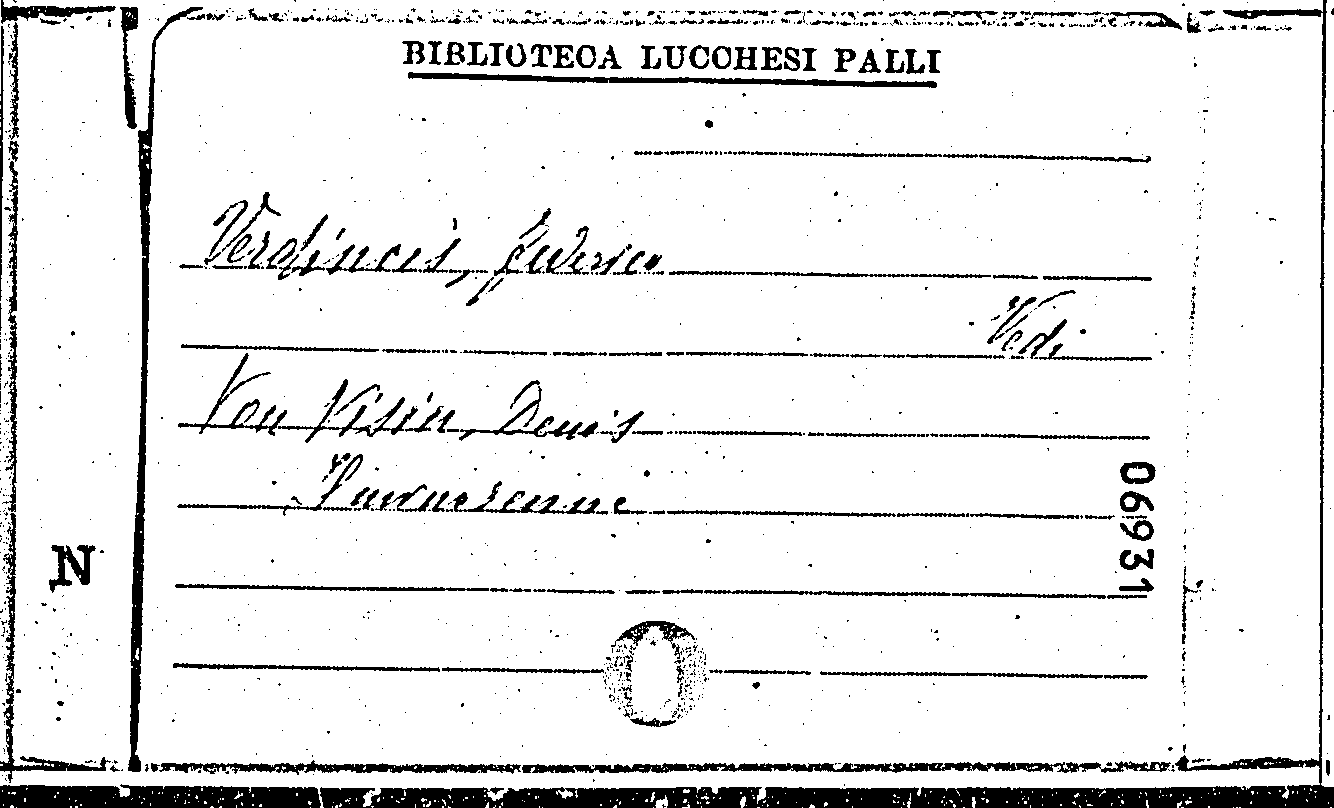 BIBLIOTECA LUCCHESI PALLI
Verdinois, Federico
Vedi
Von Visin, Denis
06931
N